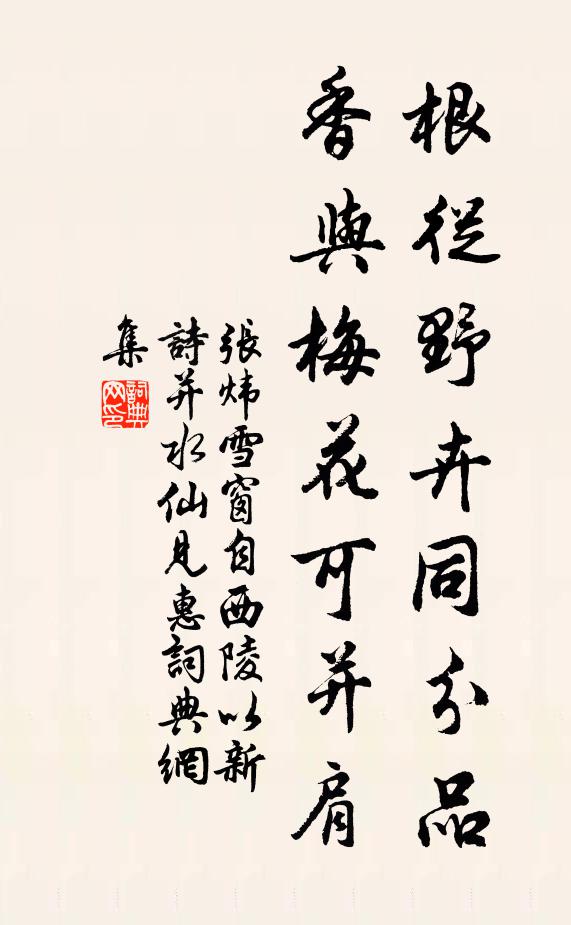 根從野卉同分品
香與梅花可并肩
張煒雪窗自西陵以新
詩并水仙見惠詞典網
集
詞典
网印